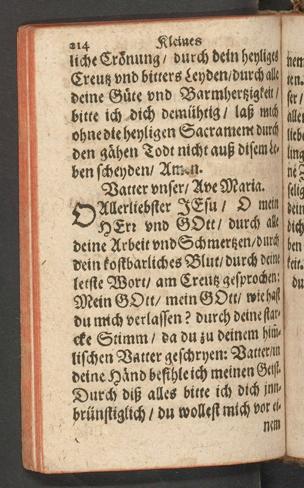 214 Kleines
liche Crönung / durch dein heyliges
Creutz vnd bitters Leyden / durch alle
deine Güte vnd Barmhertzigkeit /
bitte ich dich demühtig / laß mich
ohne die heyligen Sacrament durch
den gähen Todt nicht auß disem Le-
ben scheyden / Amen.
Vatter vnser / Ave Maria.
O Allerliebster JEsu / O mein
HErr vnd GOtt / durch alle
deine Arbeit vnd Schmertzen / durch
dein kostbarliches Blut / durch deine
letste Wort / am Creutz gesprochen:
Mein GOtt / mein GOtt / wie hast
du mich verlassen? durch deine star-
cke Stimm / da du zu deinem him-
lischen Vatter geschryen: Vatter / in
deine Händ befihle ich meinen Geist.
Durch diß alles bitte ich dich jnn-
brünstiglich / du wollest mich vor ei-
nem